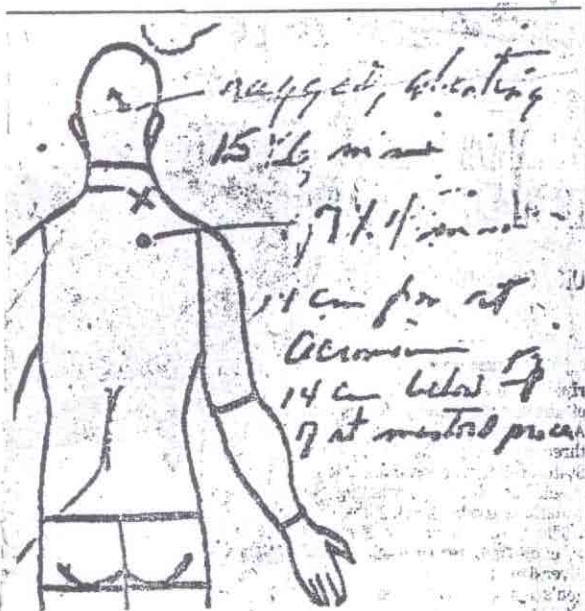 ragged, slanting
15 x 6 mm
7 x 4 mm
14 cm from rt
acromion
14 cm below tip
of rt mastoid proces